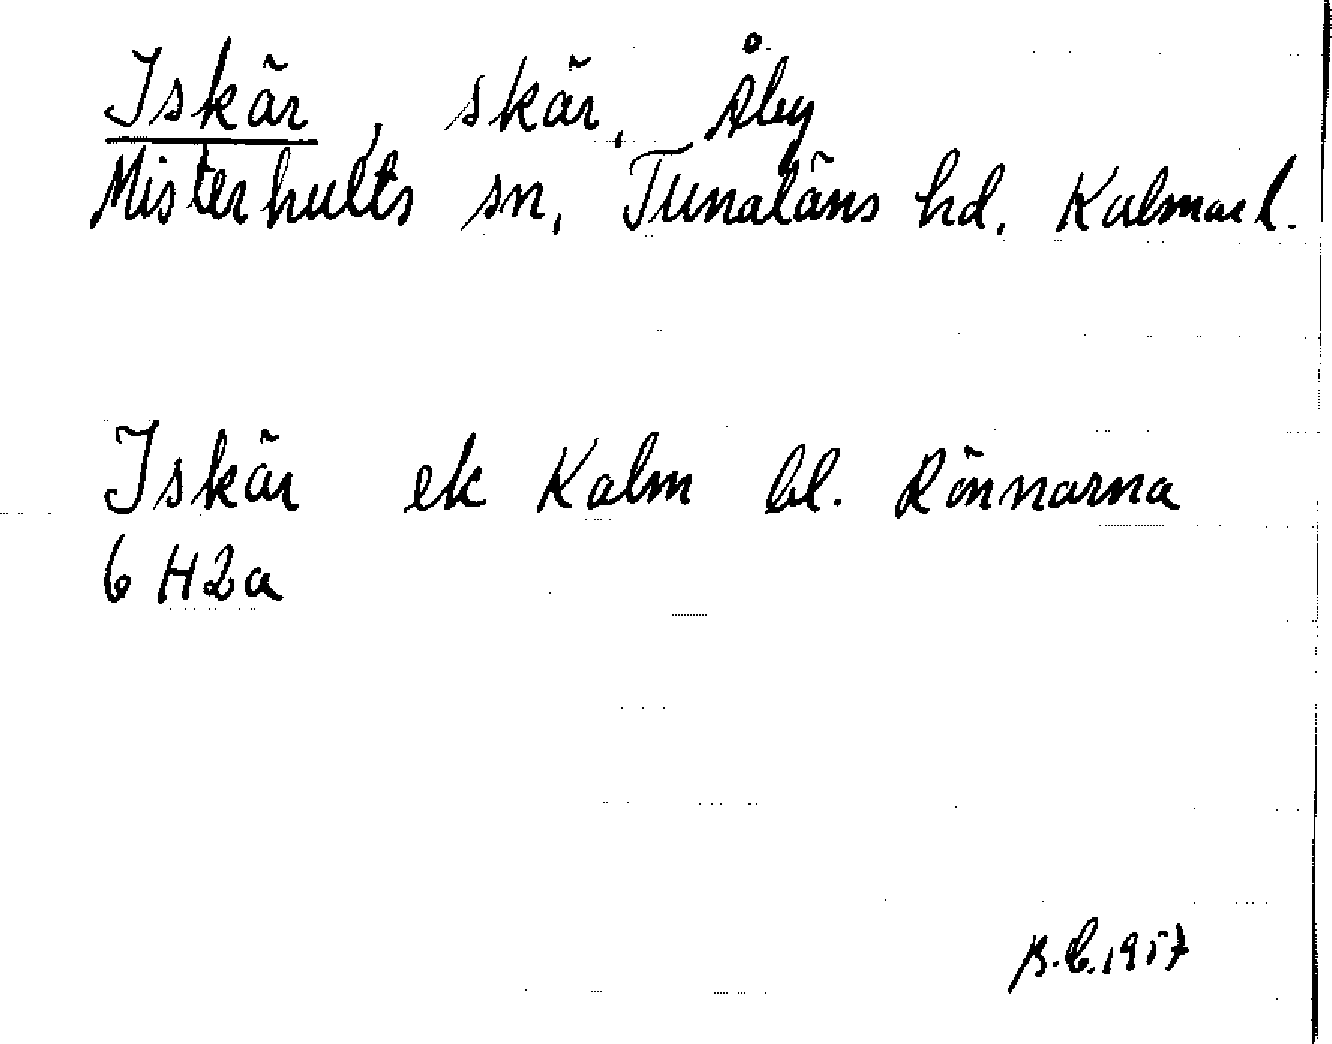 Iskär, skär, Åby
Misterhults sn, Tunaläns hd, Kalmar l.
Iskär ek Kalm bl. Rönnarna
6 H2a
B.C.1957